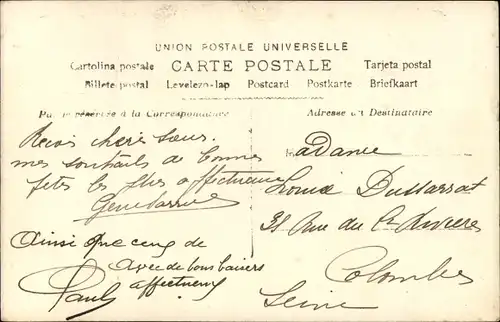 UNION POSTALE UNIVERSELLE
Cartolina postale CARTE POSTALE Tarjeta postal
Billete postal Levelezo-lap Postcard Postkarte Briefkaart
réservée à la Correspondance
Adresse du Destinataire
Reçois chère sœur
mes souhaits de bonnes
fêtes les plus affectueux
Ainsi que ceux de
avec de bons baisers
affectueux
Paul
Madame
Louise Dussarrat
rue de
Colombes
Seine